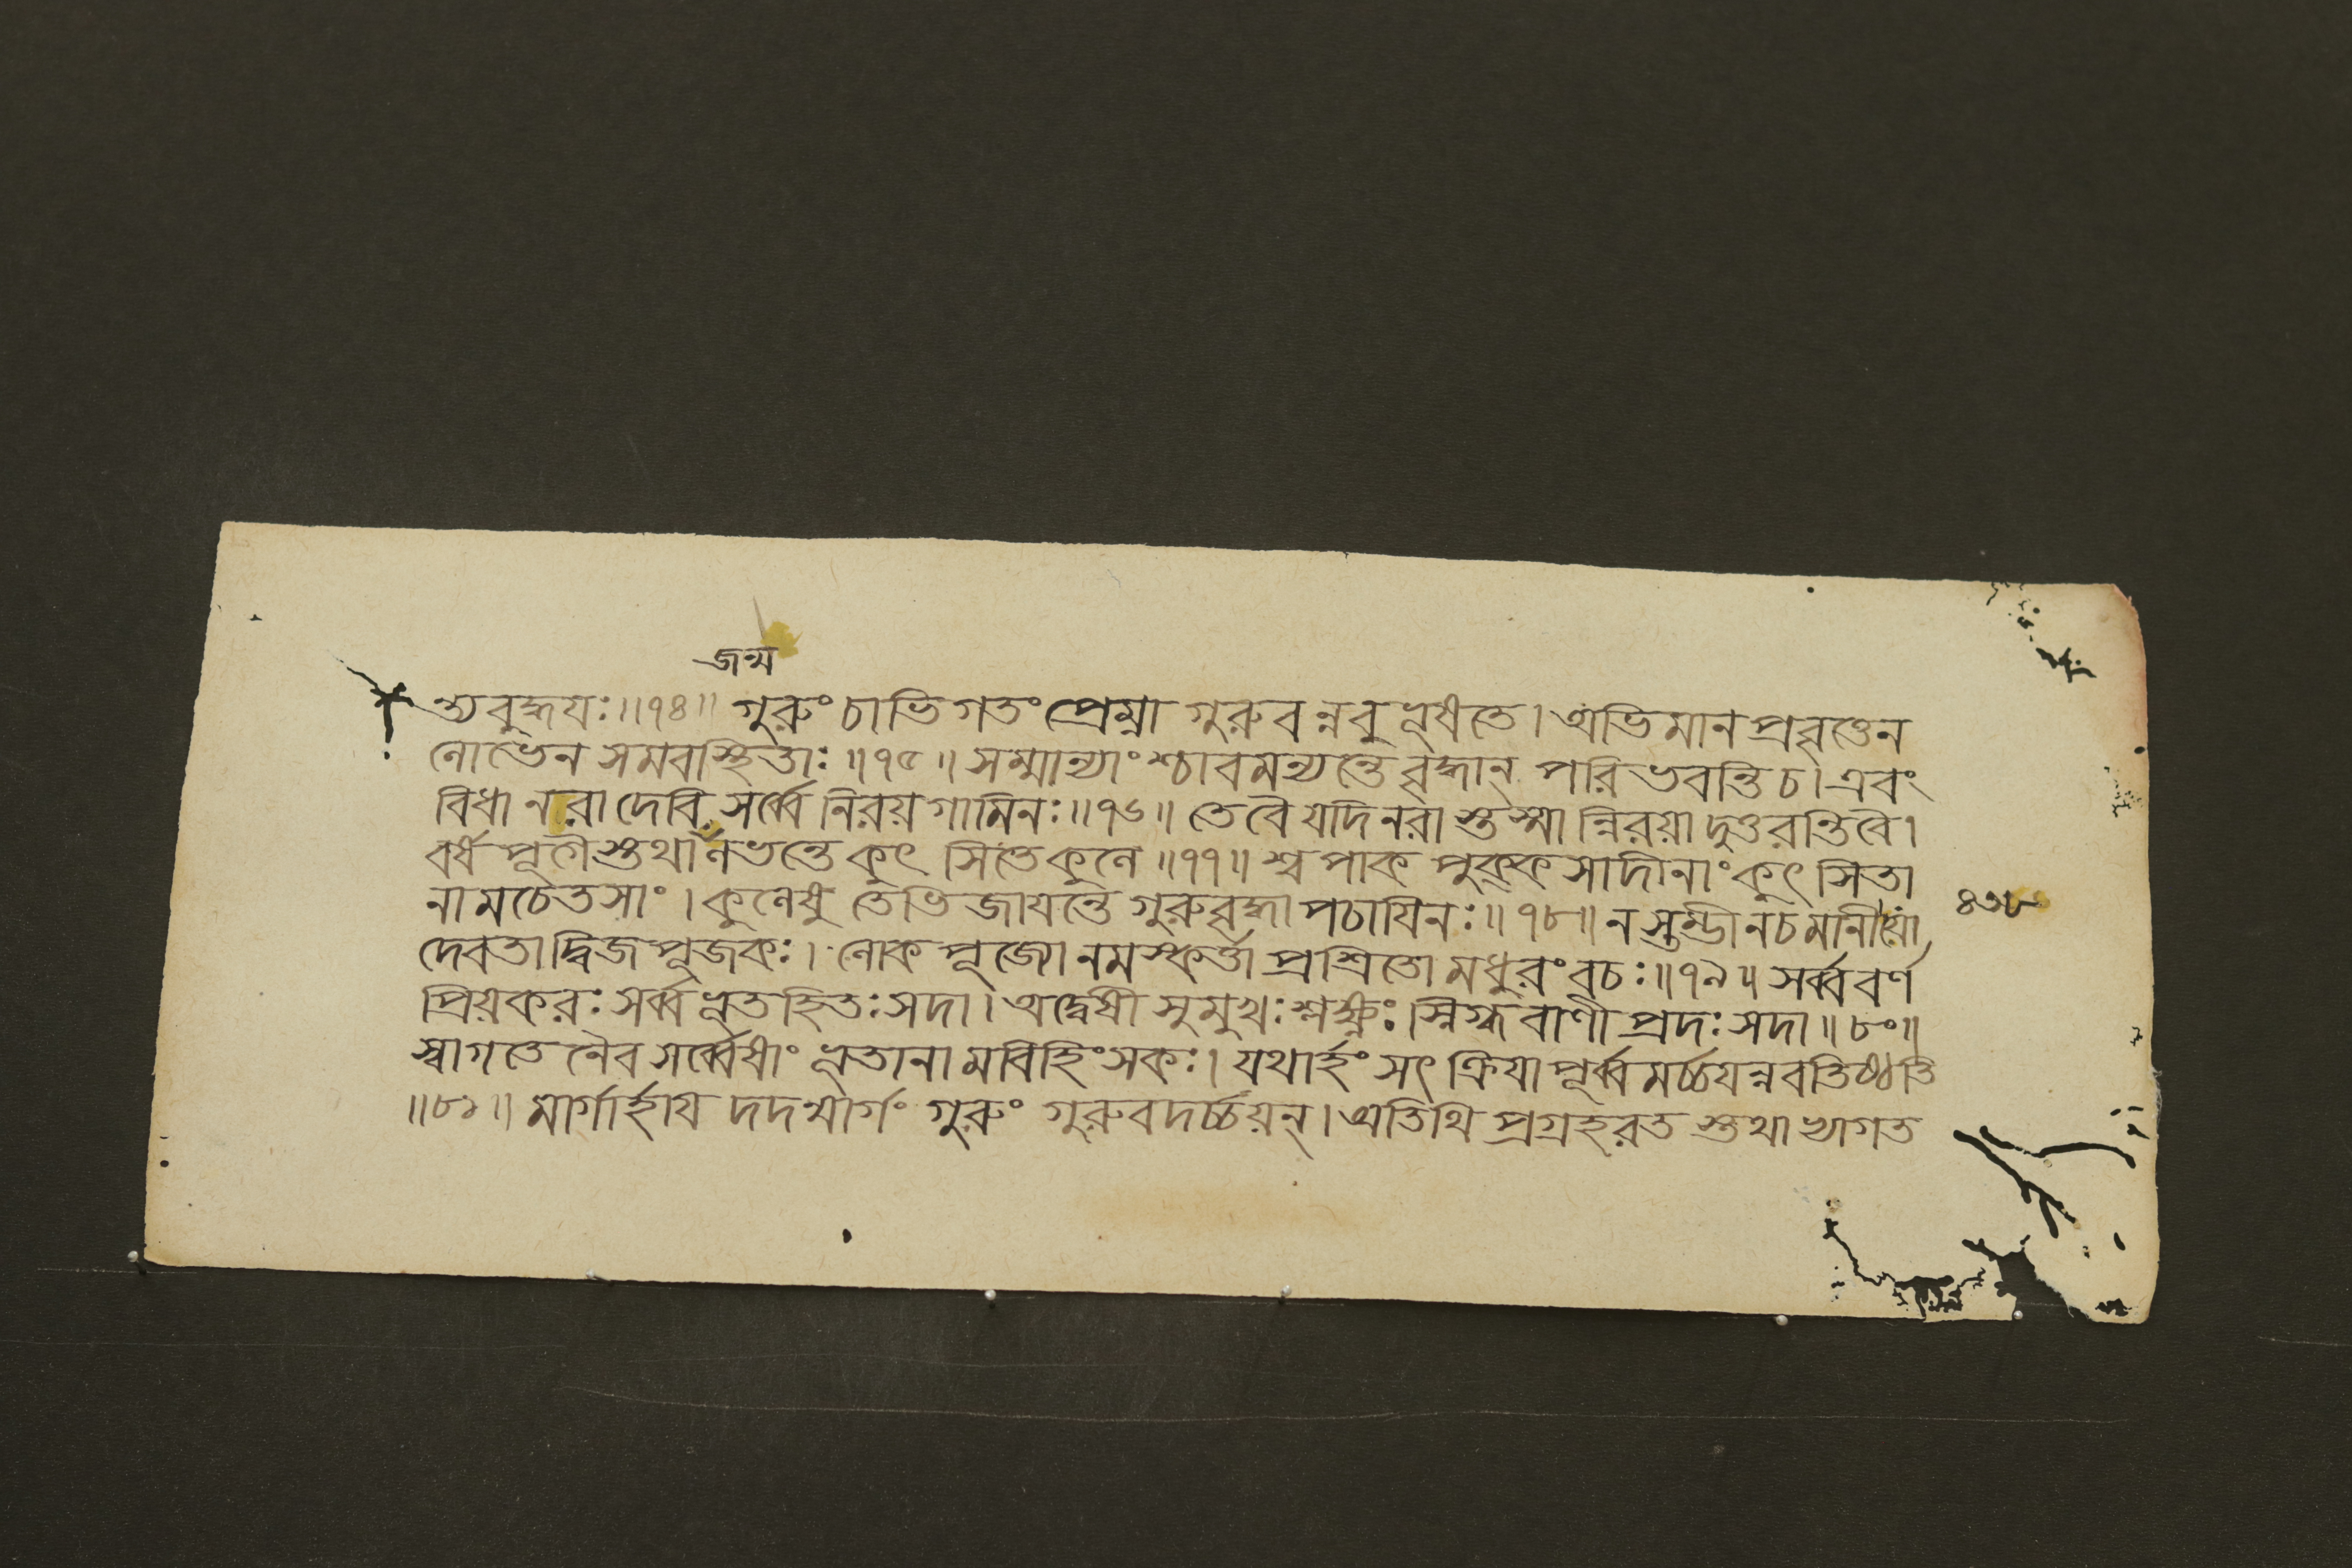 জন্ম
ত্যবুদ্ধয়ঃ॥৭৪॥ গুরুং চাভিগতং প্রেম্না গুরুবন্নবুভূষতে। অভিমানপ্রবৃত্তেন
লোভেন সমবস্থিতাঃ॥৭৫॥ সম্মান্যাংশ্চাবমন্যন্তে বৃদ্ধান্ পরিভবন্তি চ। এবং
বিধা নরা দেবি সর্ব্বে নিরয়গামিনঃ॥৭৬॥ তে বৈ যদি নরাস্তস্মান্নিরয়াদুত্তরন্তি বৈ।
বর্ষপূগৈস্তথা লভন্তে কুৎসিতে কুলে॥৭৭॥ শ্বপাকপুক্কসাদীনাং কুৎসিতা
নামচেতসাং। কুলেষু তেভিজায়ন্তে গুরুবৃদ্ধাপচায়িনঃ॥৭৮॥ ন স্তম্ভী ন চ মানী যো
৪৩৮
দেবতাদ্বিজপূজকঃ। লোকপূজ্যো নমস্কর্ত্তা প্রশ্রিতো মধুরং বচঃ॥৭৯॥ সর্ব্ববর্ণ
প্রিয়করঃ সর্ব্বভূতহিতঃ সদা। অদ্বেষী সুমুখঃ শ্লক্ষ্ণঃ স্নিগ্ধবাণীপ্রদঃ সদা॥৮০॥
স্বাগতেনৈব সর্ব্বেষাং ভূতানামবিহিংসকঃ। যথার্হং সৎক্রিয়াপূর্ব্বমর্চ্চয়ন্নবতিষ্ঠতি
॥৮১॥ মার্গার্হায় দদন্মার্গং গুরুং গুরুবদর্চ্চয়ন্। অতিথিপ্রগ্রহরতস্তথাভ্যাগত